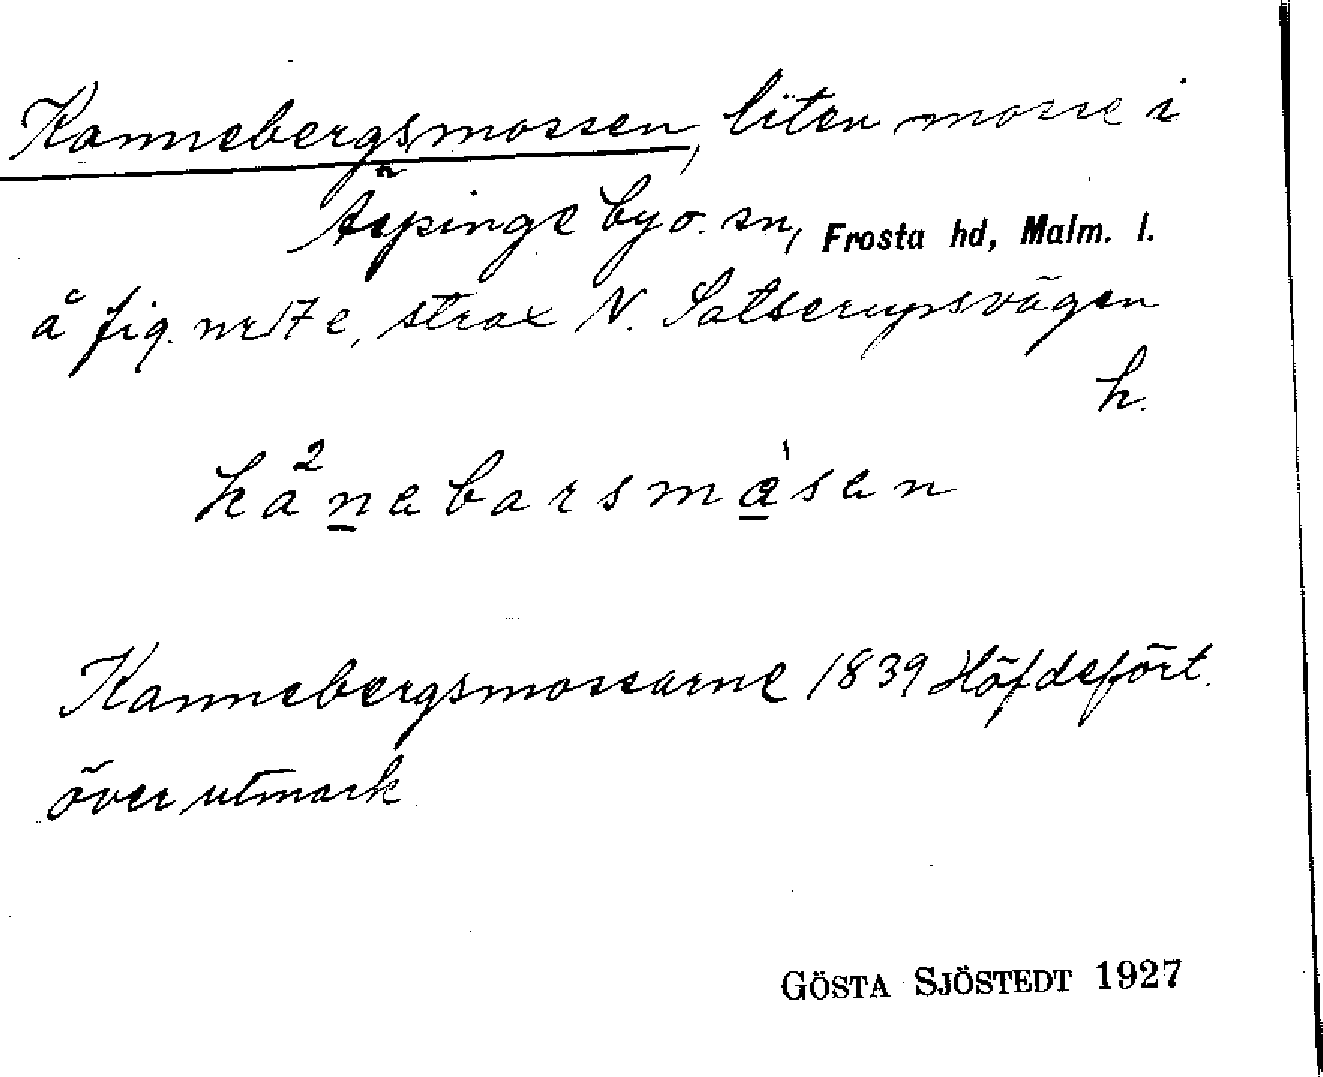 Kannebergsmossen, liten mosse i
Äspinge by o. sn, Frosta hd, Malm. l.
å fig. nr 17 e, strax N. Satserupsvägen
h.
Kannebergsmossarne 1839 Höfdefört.
över utmark
GÖSTA SJÖSTEDT 1927